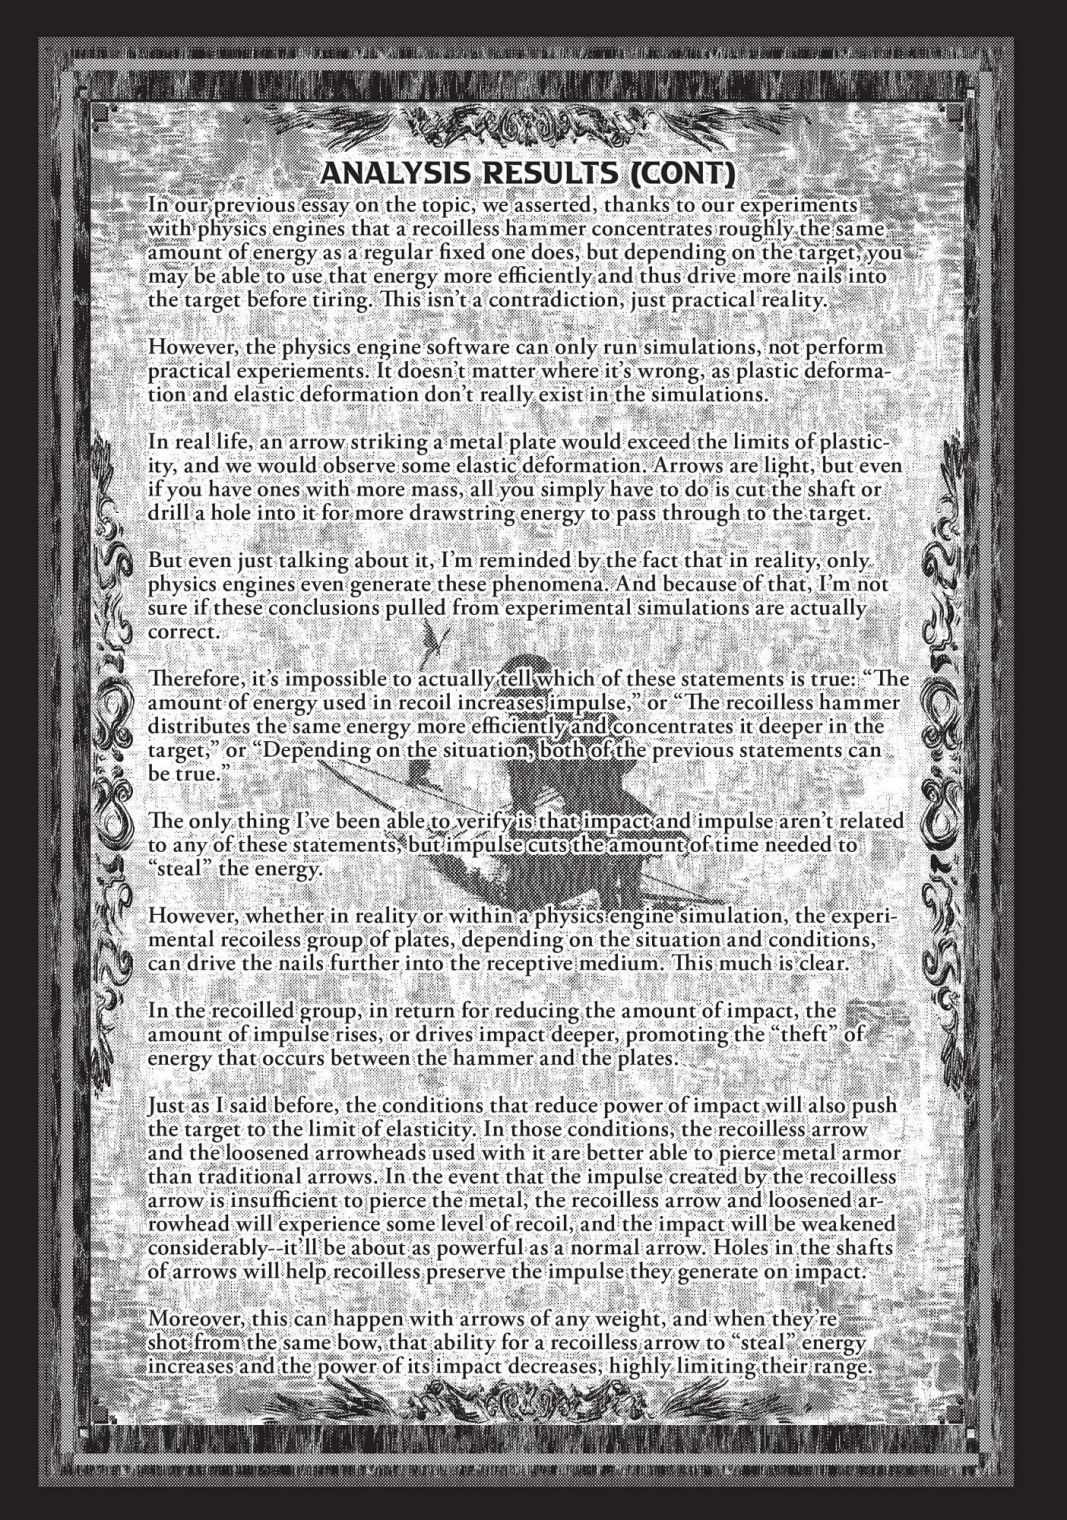 ANALYSIS RESULTS (CONT)
In our previous essay on the topic, we asserted, thanks to our experiments
with physics engines that a recoilless hammer concentrates roughly the same
amount of energy as a regular fixed one does, but depending on the target, you
may be able to use that energy more efficiently and thus drive more nails into
the target before tiring. This isn't a contradiction, just practical reality.
However, the physics engine software can only run simulations, not perform
practical experiements. It doesn't matter where it's wrong, as plastic deforma-
tion and elastic deformation don't really exist in the simulations.
In real life, an arrow striking a metal plate would exceed the limits of plastic-
ity, and we would observe some elastic deformation. Arrows are light, but even
if you have ones with more mass, all you simply have to do is cut the shaft or
drill a hole into it for more drawstring energy to pass through to the target.
But even just talking about it, I'm reminded by the fact that in reality, only
physics engines even generate these phenomena. And because of that, I'm not
sure if these conclusions pulled from experimental simulations are actually
correct.
Therefore, it's impossible to actually tell which of these statements is true: "The
amount of energy used in recoil increases impulse," or "The recoilless hammer
distributes the same energy more efficiently and concentrates it deeper in the
target," or "Depending on the situation, both of the previous statements can
be true."
The only thing I've been able to verify is that impact and impulse aren't related
to any of these statements, but impulse cuts the amount of time needed to
"steal" the energy.
However, whether in reality or within a physics engine simulation, the experi-
mental recoiless group of plates, depending on the situation and conditions,
can drive the nails further into the receptive medium. This much is clear.
In the recoilled group, in return for reducing the amount of impact, the
amount of impulse rises, or drives impact deeper, promoting the "theft" of
energy that occurs between the hammer and the plates.
Just as I said before, the conditions that reduce power of impact will also push
the target to the limit of elasticity. In those conditions, the recoilless arrow
and the loosened arrowheads used with it are better able to pierce metal armor
than traditional arrows. In the event that the impulse created by the recoilless
arrow is insufficient to pierce the metal, the recoilless arrow and loosened ar-
rowhead will experience some level of recoil, and the impact will be weakened
considerably--it'll be about as powerful as a normal arrow. Holes in the shafts
of arrows will help recoilless preserve the impulse they generate on impact.
Moreover, this can happen with arrows of any weight, and when they're
shot from the same bow, that ability for a recoilless arrow to "steal" energy
increases and the power of its impact decreases, highly limiting their range.